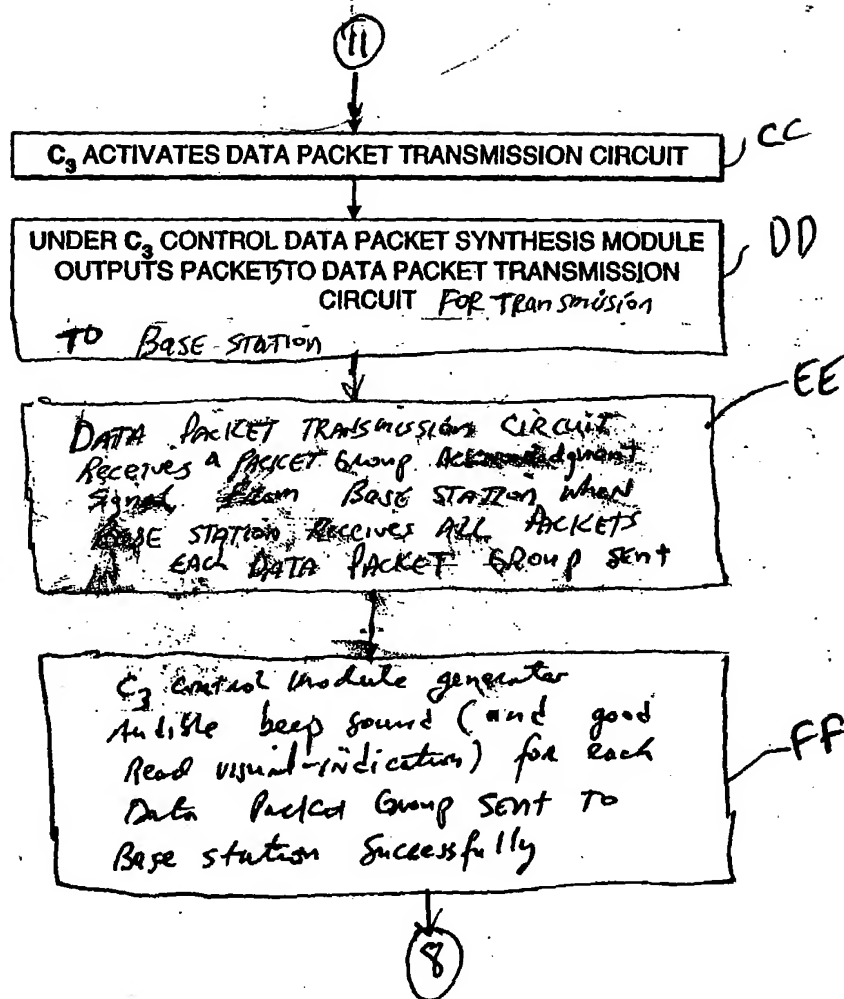 11
C3 ACTIVATES DATA PACKET TRANSMISSION CIRCUIT
CC
UNDER C3 CONTROL DATA PACKET SYNTHESIS MODULE
DD
OUTPUTS PACKETS TO DATA PACKET TRANSMISSION
CIRCUIT FOR Transmission
TO BASE STATION
EE
DATA PACKET TRANSMISSION CIRCUIT
Receives a PACKET Group Acknowledgment
Signal From BASE STATION when
BASE STATION Receives ALL PACKETS
EACH DATA PACKET GROUP Sent
C3 control module generator
Audible beep sound (and good
Read visual-indication) for each
FF
Data Packet Group SENT TO
Base station Successfully
8